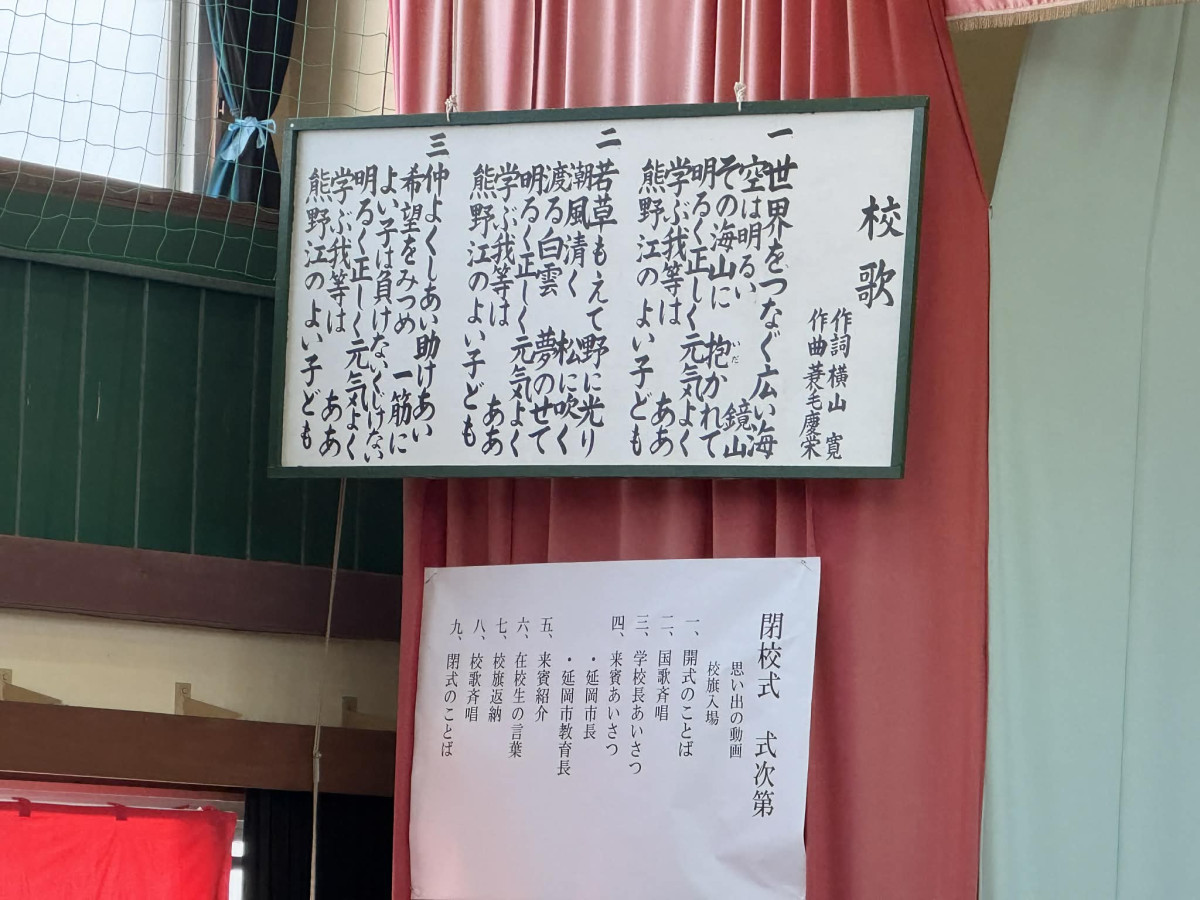 校歌
作詞 横山 寛
作曲 蓑毛慶栄
一 世界をつなぐ広い海
空は明るい 鏡山
その海山に 抱かれて
いだ
明るく正しく元気よく
学ぶ我等は ああ
熊野江のよい子ども
二 若草もえて野に光り
潮風清く 松に吹く
渡る白雲 夢のせて
明るく正しく元気よく
学ぶ我等は ああ
熊野江のよい子ども
三 仲よくしあい助けあい
希望をみつめ 一筋に
よい子は負けないくじけない
明るく正しく元気よく
学ぶ我等は ああ
熊野江のよい子ども
閉校式 式次第
思い出の動画
校旗入場
一、開式のことば
二、国歌斉唱
三、学校長あいさつ
四、来賓あいさつ
・延岡市長
・延岡市教育長
五、来賓紹介
六、在校生の言葉
七、校旗返納
八、校歌斉唱
九、閉式のことば